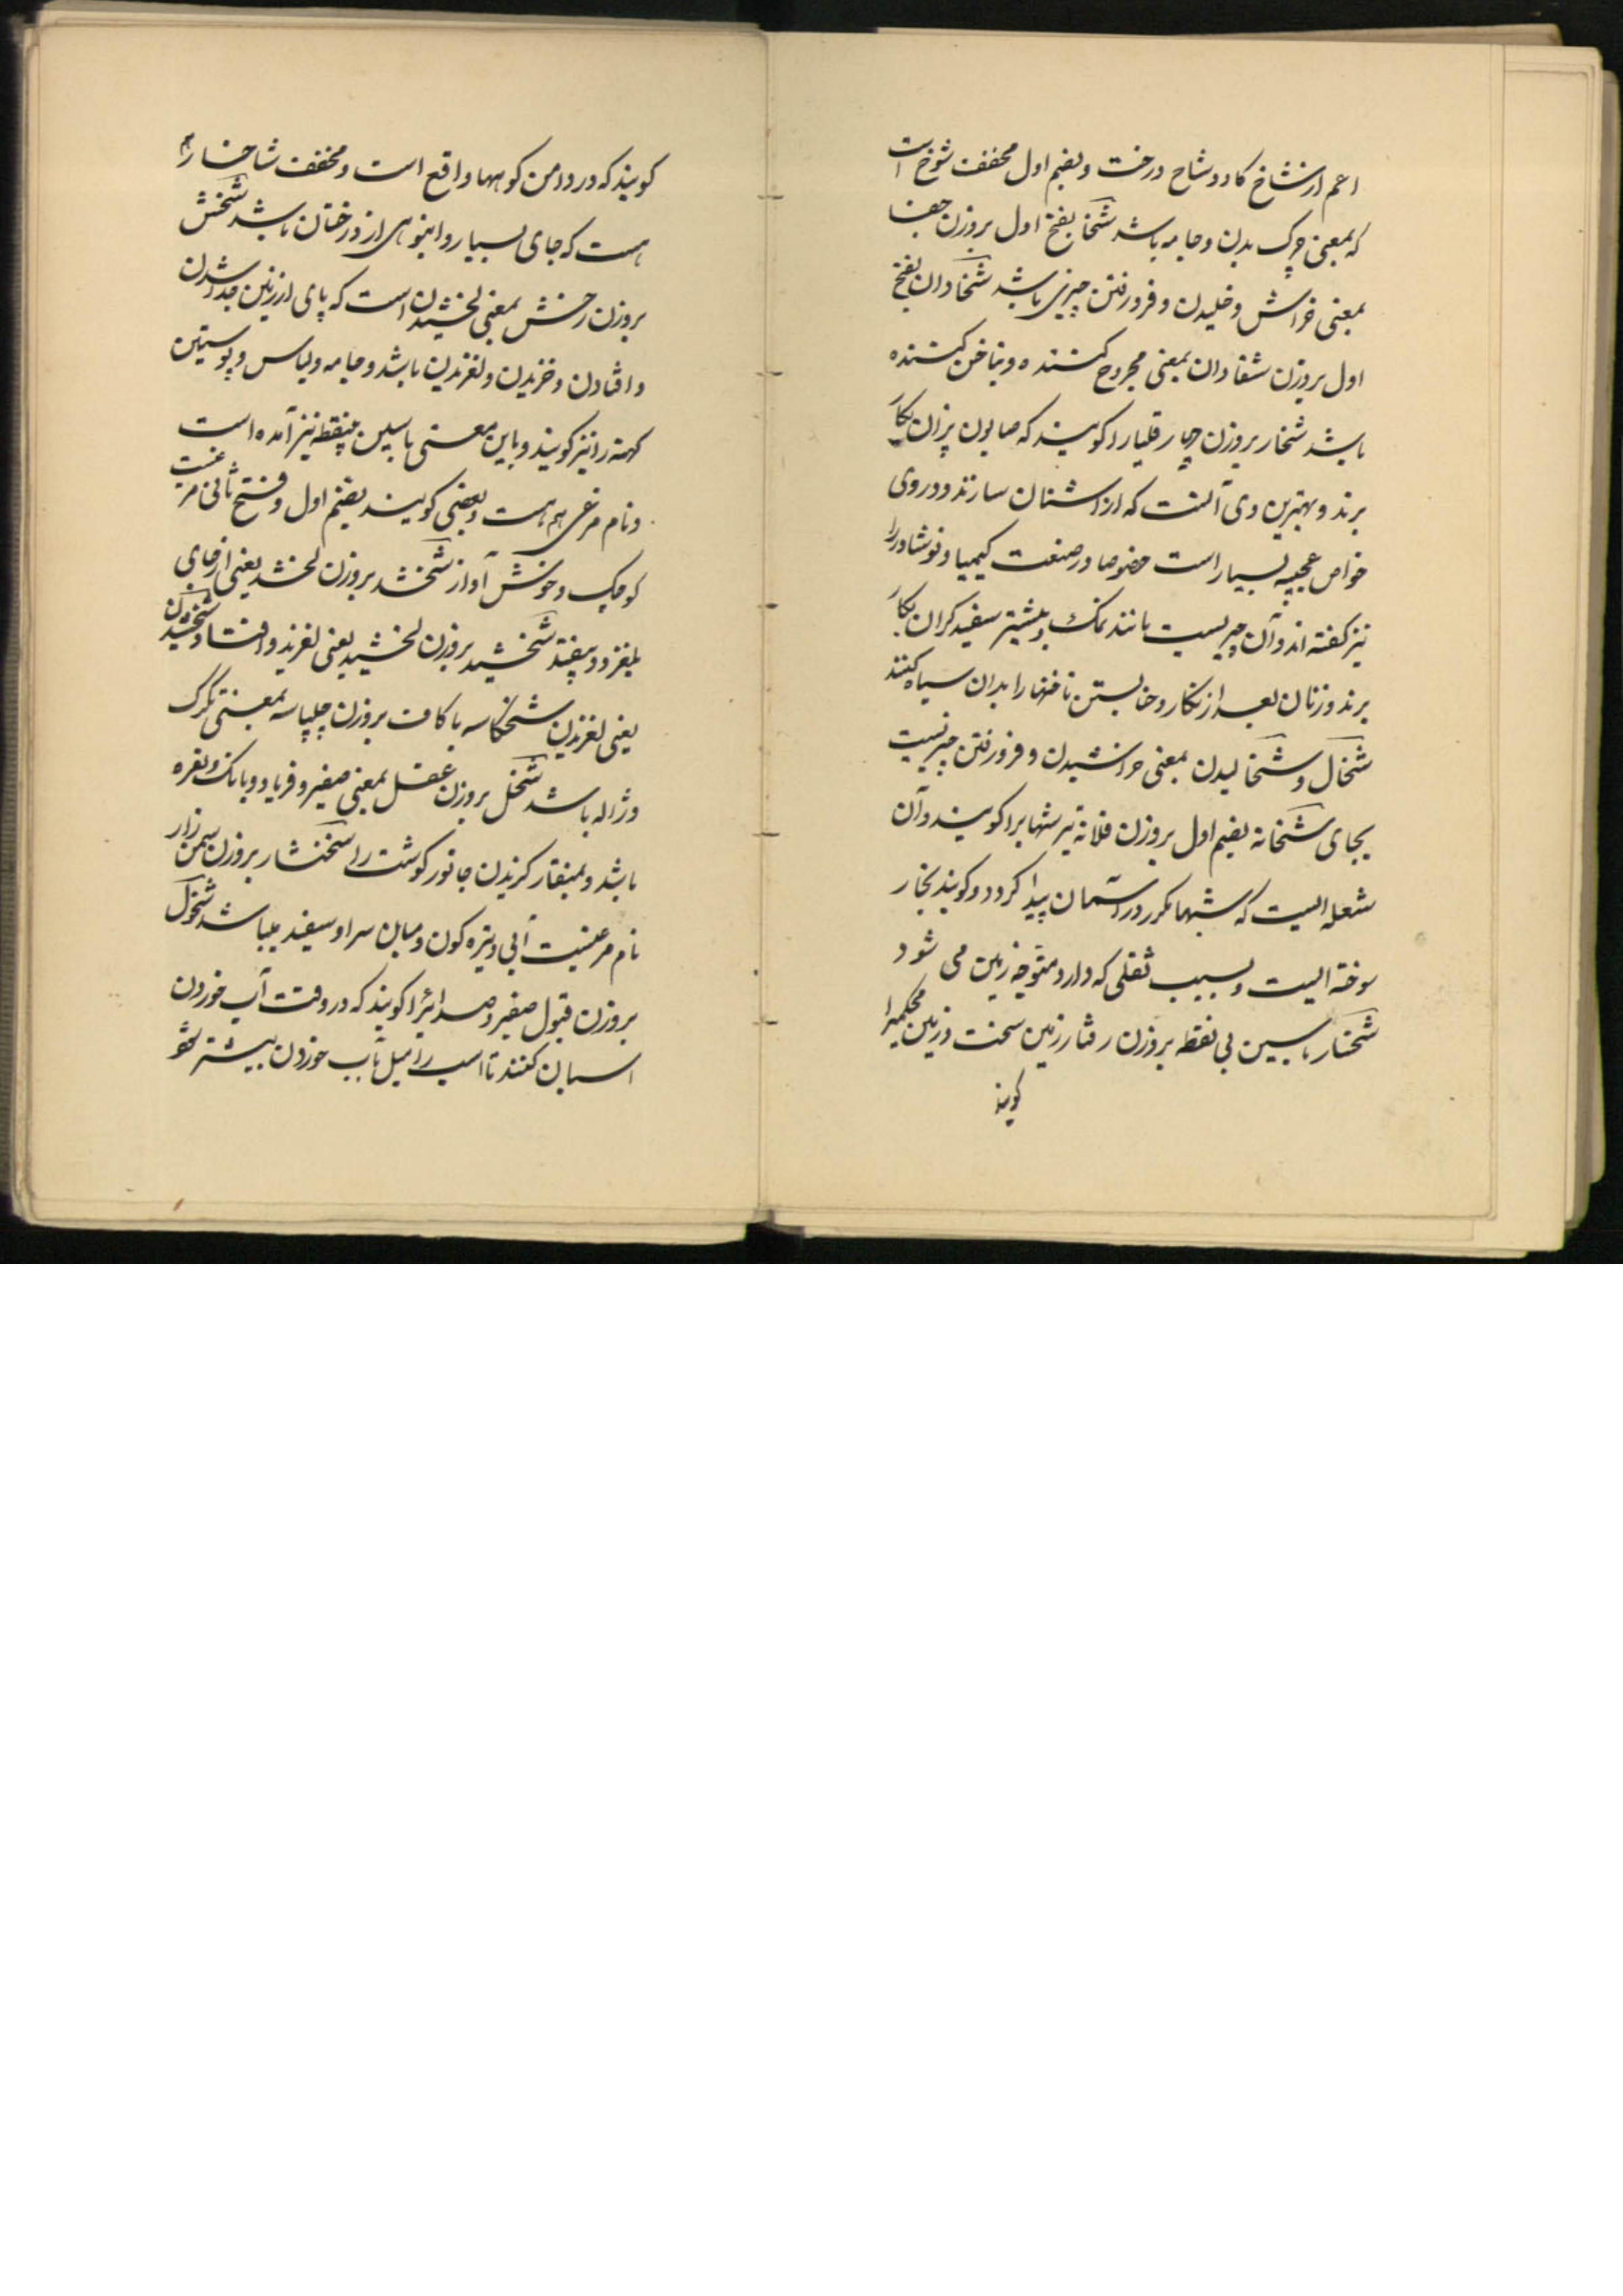 اعم از شاخ کاو و شاخ درخت و بضم اول مخفف شوخ است
که بمعنی چرک بدن و جامه باشد شخا بفتح اول بروزن جفا
بمعنی خراش و خلیدن و فرو رفتن چیزی باشد شخادان بفتح
اول بروزن شفادان بمعنی مجروح کننده و بناخن کننده
باشد شخار بروزن چهار قلیا را کویند که صابون پزان بکار
برند و بهترین وی آنست که از اشنان سازند و در وی
خواص عجیبه بسیار است خصوصا در صنعت کیمیا و نوشادر را
نیز کفته اند و آن چیزیست مانند نمک و بیشتر سفید کران بکار
برند و زنان بعد از نکار و حنا بستن ناخنها را بدان سیاه کنند
شخال و شخالیدن بمعنی خراشیدن و فرو رفتن چیزیست
بجای شخانه بضم اول بروزن فلانه تیر شهاب را کویند و آن
شعله ایست که شبها مکرر در آسمان پیدا کردد و کویند بخار
سوخته ایست و بسبب ثقلی که دارد متوجه زمین می شود
شخسار باسین بی نقطه بروزن رفتار زمین سخت و زمین محکم را
کویند
کویند که در دامن کوهها واقع است و مخفف شاخسار هم
هست که جای بسیار و انبوهی از درختان باشد شخش
بروزن رخش بمعنی لخشیدن است که پای از زمین جدا شدن
و افتادن و خزیدن و لغزیدن باشد و جامه و لباس و پوستین
کهنه را نیز کویند و باین معنی باسین بینقطه نیز آمده است
و نام مرغی هم هست و بعضی کویند بضم اول و فتح ثانی مرغیست
کوچک و خوش آواز شخشد بروزن لخشد یعنی از جای
بلغزد و بیفتد شخشید بروزن لخشید یعنی لغزید و افتاد و شخشیدن
یعنی لغزیدن شخکاسه با کاف بروزن چلپاسه بمعنی تکرک
و ژاله باشد شخل بروزن عقل بمعنی صفیر و فریاد و بانک و نعره
باشد و بمنقار کزیدن جانور کوشت را شخنشار بروزن سمن زار
نام مرغیست آبی و تیره کون و میان سر او سفید میباشد شخول
بروزن قبول صفیر و صدائیرا کویند که در وقت آب خوردن
اسبان کنند تا اسب را میل بآب خوردن بیشتر شود